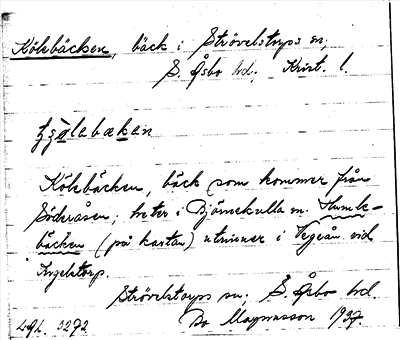 Kölebäcken, bäck i Strövelstorps sn,
S. Åsbo hd. Krist. l.
Kölebäcken, bäck som kommer från
Söderåsen; heter i Björnekulla sn. Humle-
bäcken (på kartan) utrinner i Vegeån vid
Ingelstorp.
Strövelstorps sn; S. Åsbo hd.
Bo Magnusson 1927.